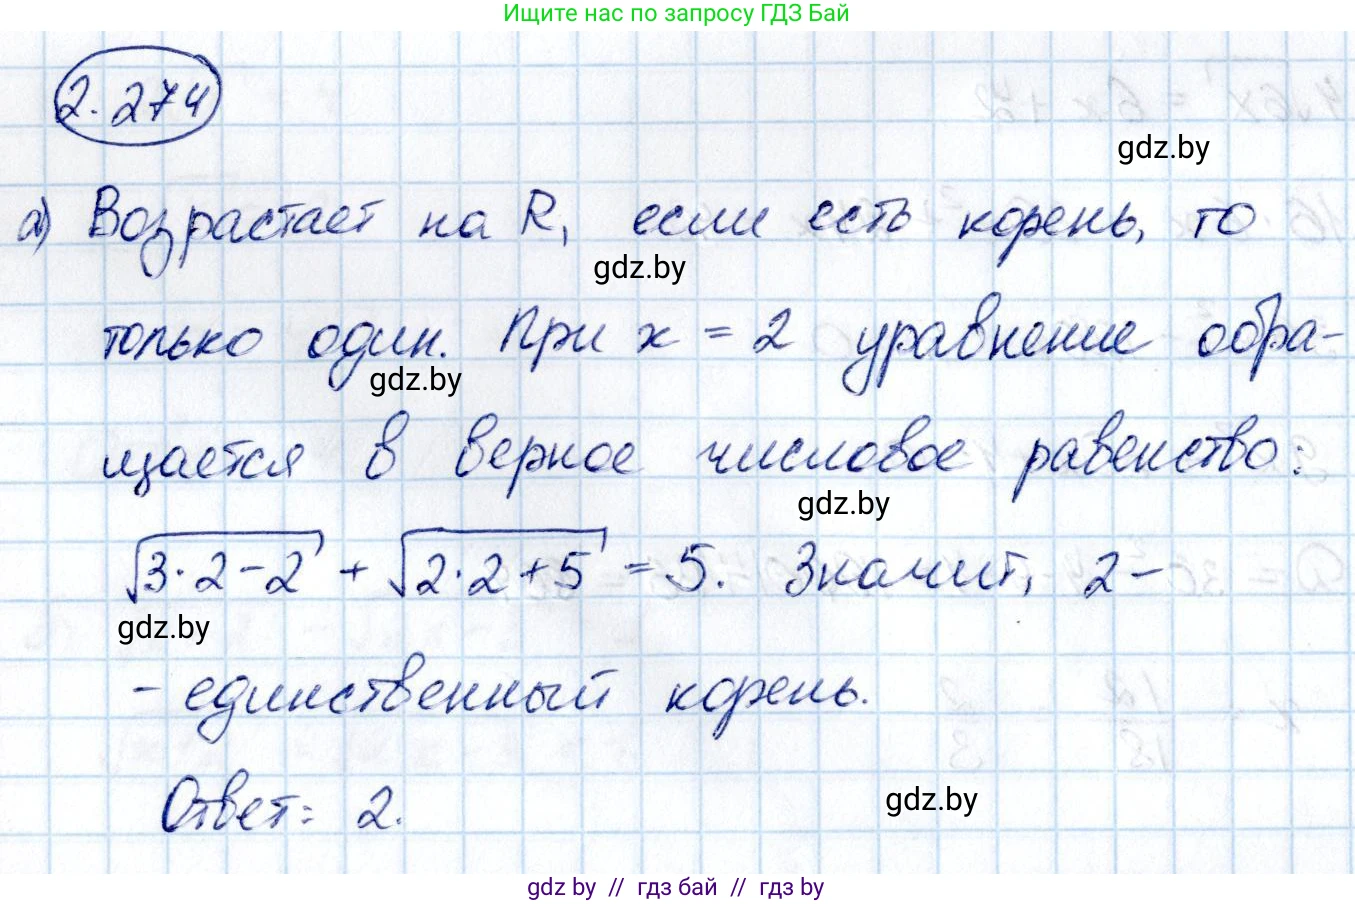 Ищите нас по запросу ГДЗ Бай
2.274
gdz.by
а) Возрастает на R, если есть корень, то
gdz.by
только один. При x = 2 уравнение обра-
gdz.by
щается в верное числовое равенство:
gdz.by
√3·2-2 + √2·2+5 = 5. Значит, 2 -
gdz.by
- единственный корень.
Ответ: 2.
gdz.by
gdz by // гдз бай // гдз by